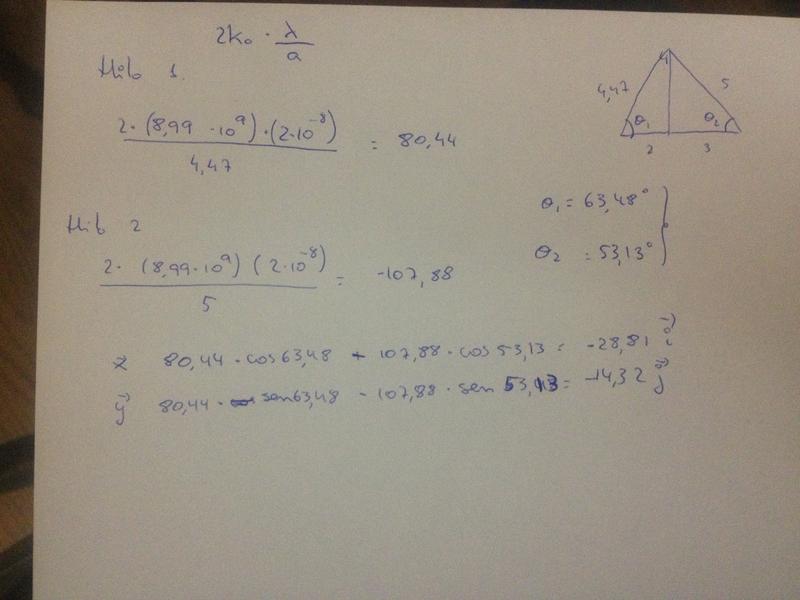 2k₀ · λ/a
Hilo 1.
2 · (8,99 · 10⁹) · (2 · 10⁻⁸) / 4,47 = 80,44
4,47
5
θ₁
θ₂
2
3
Hilo 2
2 · (8,99 · 10⁹) (2 · 10⁻⁸) / 5 = -107,88
θ₁ = 63,48°
θ₂ = 53,13°
x 80,44 · cos 63,48 - 107,88 · cos 53,13 = -28,81 i⃗
y⃗ 80,44 · sen 63,48 - 107,88 · sen 53,13 = -14,32 j⃗